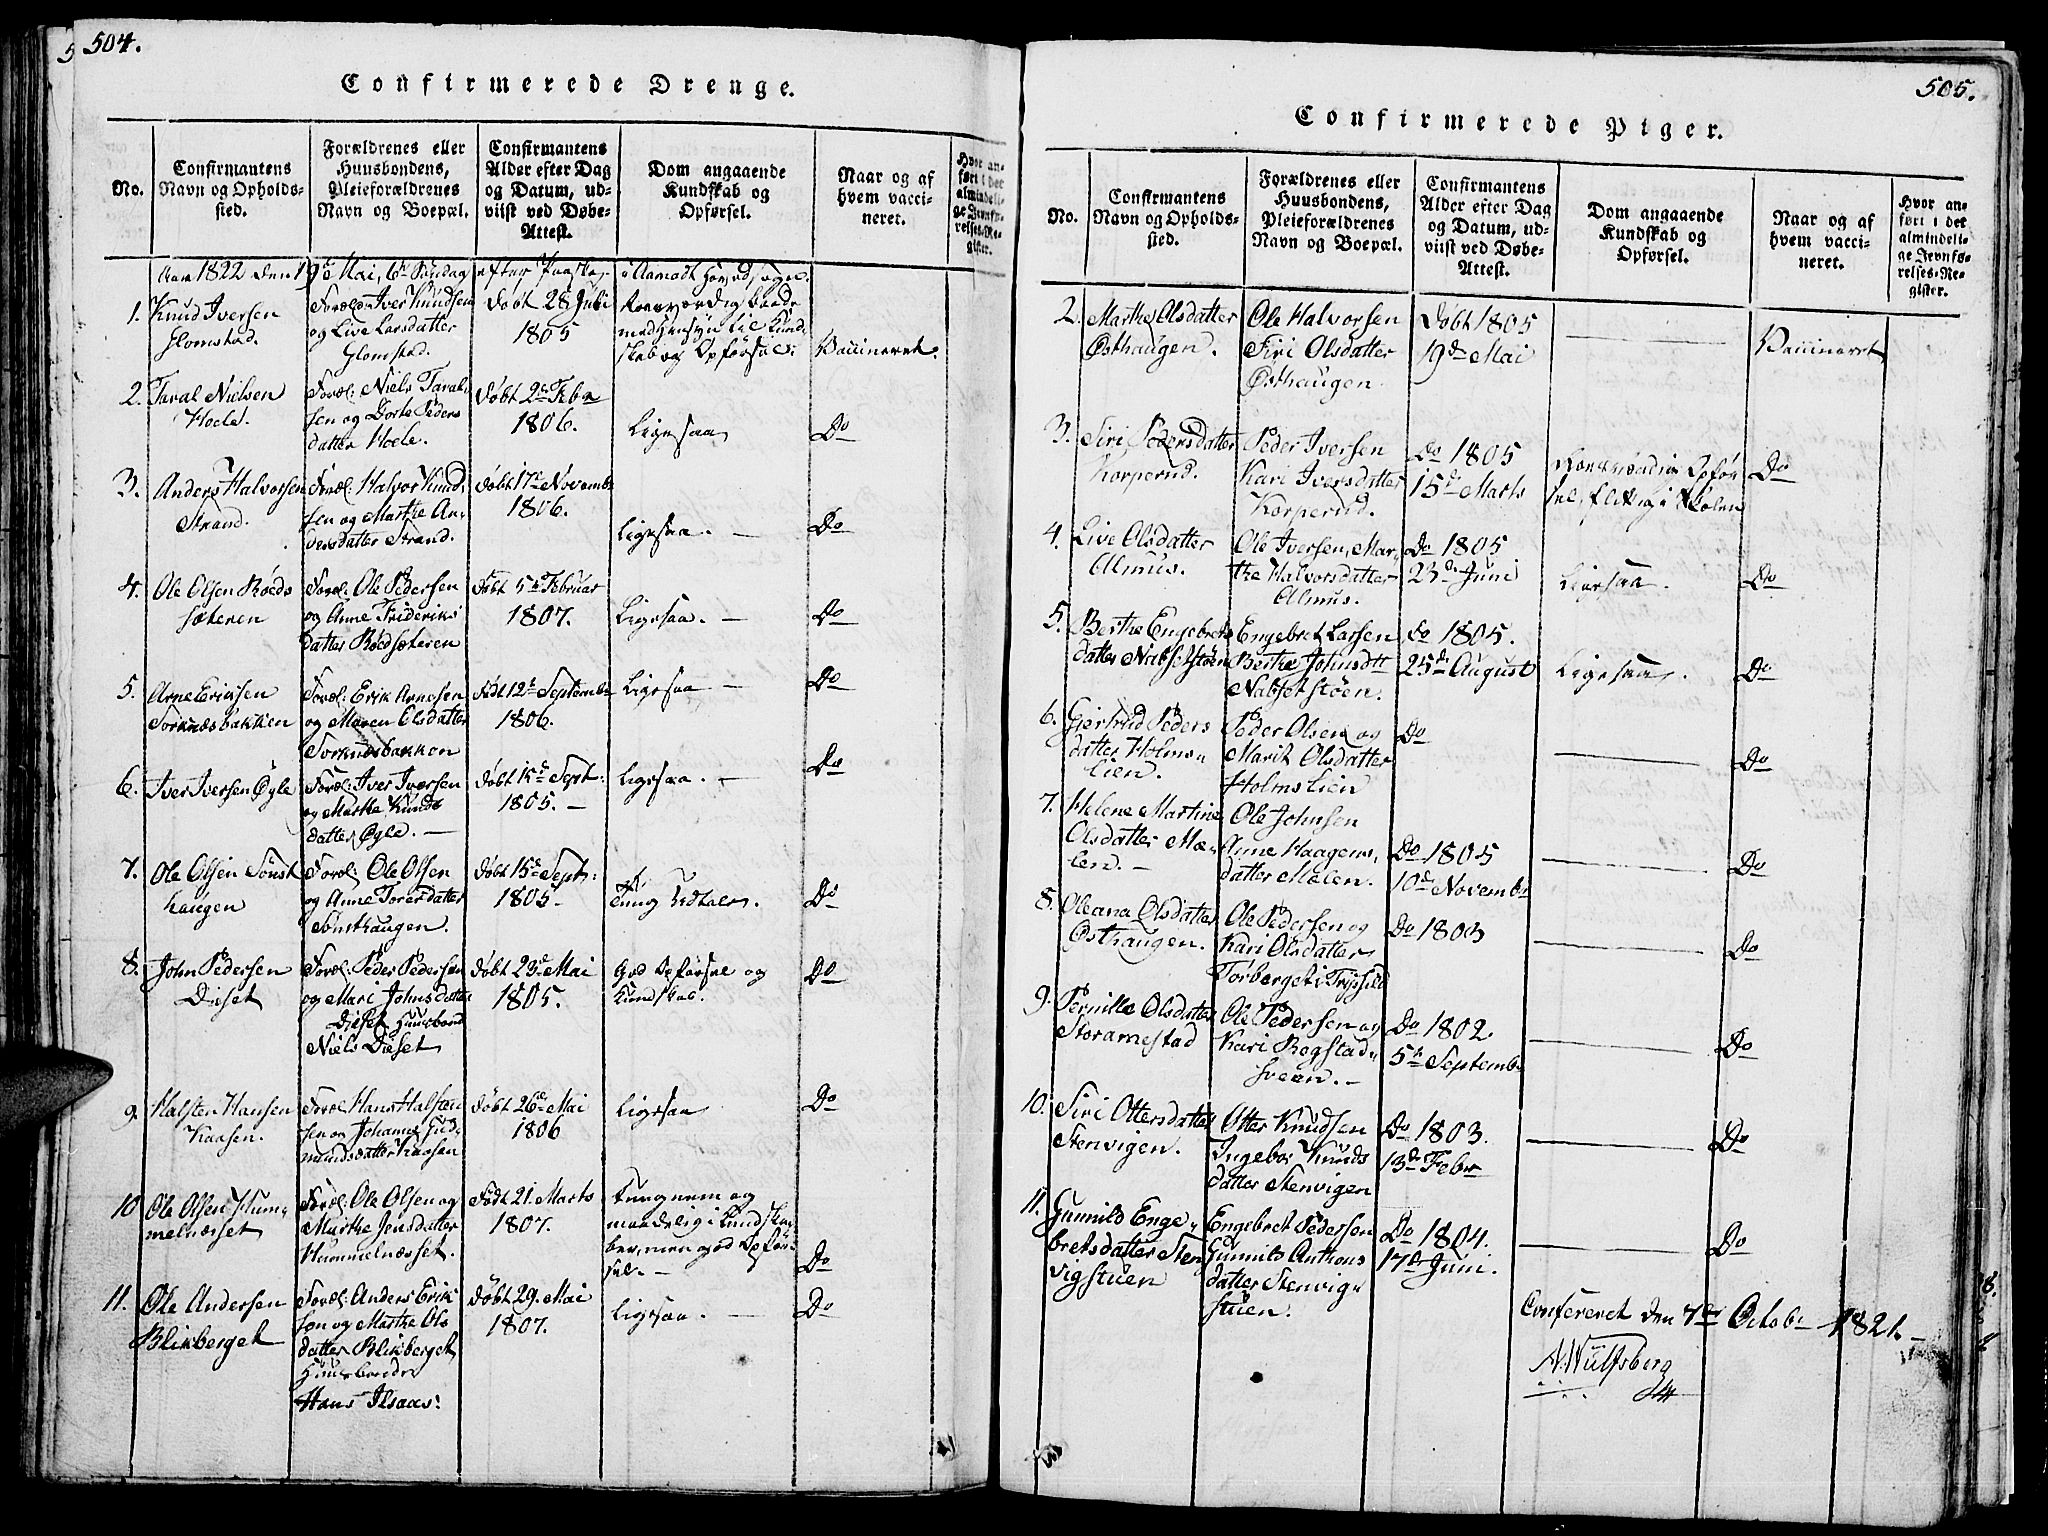 504.
Confirmerede Drenge.
No.
Confirmantens Navn og Opholds-sted.
Forældrenes eller Huusbondens, Pleieforældrenes Navn og Boepæl.
Confirmantens Alder efter Dag og Datum, ud-viist ved Døbe-Attest.
Dom angaaende Kundskab og Opførsel.
Naar og af hvem vacci-neret.
Hvor an-ført i det almindeli-ge Jevnfø-relses-Re-gister.
Aar 1822 den 19de Mai, 6te Søndag efter Paaske, i Aamodt Hovedsogn.
1. Knud Iversen Glomstad.
Foræld: Iver Knudsen og Live Larsdatter Glomstad.
Døbt 28 Juli 1805
med Hensyn til Kund-skab og Opførsel.
Vaccineret.
2. Taral Nielsen Hoele.
Foræl: Niels Taral-sen og Dorte Peders datter Hoele.
Døbt 2de Febr 1806.
Ligesaa
Do
3. Anders Halvorsen Strand.
Foræl: Halvor Knud-sen og Marthe An-dersdatter Strand.
Døbt 17de Novemb 1806.
Ligesaa. —
Do
4. Ole Olsen Røeds sæteren
Foræl: Ole Pedersen og Anne Frideriks datter Røedsæteren
Født 5te Februar 1807.
Ligesaa. —
Do
5. Arne Eriksen Sorknæsbakken
Foræl: Erik Arnesen og Maren Olsdatter Sorknæsbakken
Født 12te Septembr 1806.
Ligesaa —
Do
6. Iver Iversen Øgle
Foræl: Iver Iversen og Marthe Knuds datter Øgle. —
Døbt 15de Sept: 1805. —
Ligesaa. —
Do
7. Ole Olsen Sønst haugen
Foræl: Ole Olsen og Anne Torersdatter Sønsthaugen.
Døbt 15de Sept: 1805. —
Tung Udtale.
Do
8. John Pedersen Dieset
Foræl: Peder Pedersen og Mari Johnsdatter Dieset Huusbond Niels Dieset
Døbt 23de Mai 1805.
God Opførsel og Kundskab.
Do
9. Halsten Hansen Kaasen.
Foræl Hans Halsten sen og Johanne Gud-mundsdatter Kaasen
Døbt 26de Mai 1806
Ligesaa
Do
10 Ole Olsen Hum-melnæsset
Foræl: Ole Olsen og Marthe Jensdatter Hummelnæsset.
Født 21. Marts 1807.
Tungnem og maadelig i Kundska-ber, men god Opfør-sel. —
Do
11. Ole Andersen Blikberget
Foræl: Anders Erik sen og Marthe Ols datter Blikberget, Huusbonde Hans Ilsaas.
Døbt 29. Mai 1807.
Ligesaa. —
Do
505.
Confirmerede Piger.
No.
Confirmantens Navn og Opholds-sted.
Forældrenes eller Huusbondens, Pleieforældrenes Navn og Boepæl.
Confirmantens Alder efter Dag og Datum, ud-viist ved Døbe-Attest.
Dom angaaende Kundskab og Opførsel.
Naar og af hvem vacci-neret.
Hvor an-ført i det almindeli-ge Jevnfø-relses-Re-gister.
2. Marthe Olsdatter Østhaugen.
Ole Halvorsen Siri Olsdatter Østhaugen.
Døbt 1805 19de Mai
—
Vaccineret
3. Siri Pedersdatter Korperud.
Peder Iversen Kari Iversdatter Korperud.
Do 1805 15de Marts
Opfør sel, flittig i Skolen
Do
4. Live Olsdatter Almus.
Ole Iversen, Mar-the Halvorsdatter Almus.
Do 1805 23de Juni
Ligesaa.
Do
5. Berthe Engebrets datter Nabsetstøen
Engebret Larsen Berthe Johnsdtt Nabsetstøen.
Do 1805. 25de August
Ligesaa.
Do
6. Gjertrud Peders datter Holms-lien.
Peder Olsen og Marit Olsdatter Holmslien
Do
—
Do
7. Helene Martine Olsdatter Mæ-len. —
Ole Johnsen Anne Haagens-datter Mælen.
Do 1805 10de Novembr
—
Do
8. Oleana Olsdatter Østhaugen.
Ole Pedersen og Kari Olsdatter Torberget i Trysild
Do 1803
—
Do
9. Pernille Olsdatter Storamestad
Ole Pedersen og Kari Rogstad-sveen. —
Do 1802. 5te Septemb
—
Do
10. Siri Ottersdatter Stenvigen.
Otter Knudsen Ingebor Knuds datter Stenvigen
Do 1803. 13de Febr
—
Do
11. Gunnild Enge-bretsdatter Sten vigstuen
Engebret Pedersen Gunnild Anthons datter Stenvig-stuen.
Do 1804. 17de Juni.
—
Do
Confereret den 7de Octob: 1821. —
N. Wulfsberg